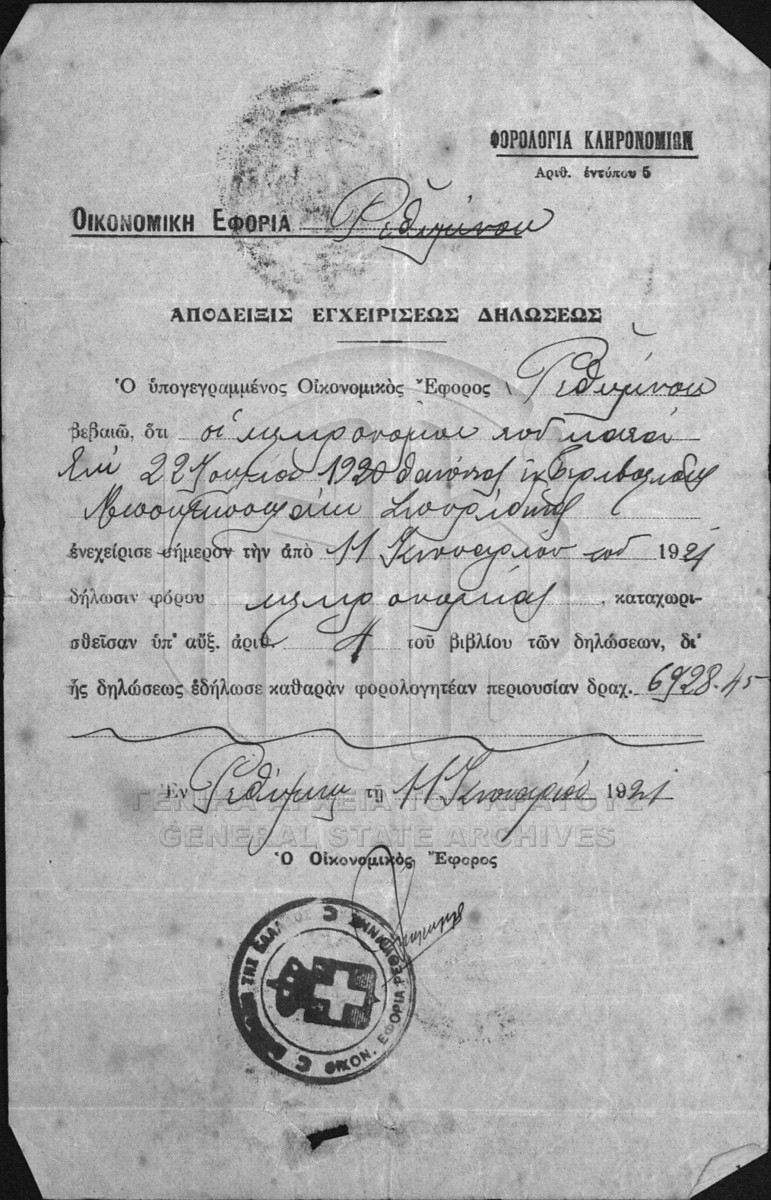 ΦΟΡΟΛΟΓΙΑ ΚΛΗΡΟΝΟΜΙΩΝ
Αριθ. ἐντύπου 5
ΟΙΚΟΝΟΜΙΚΗ ΕΦΟΡΙΑ Ρεθύμνου
ΑΠΟΔΕΙΞΙΣ ΕΓΧΕΙΡΙΣΕΩΣ ΔΗΛΩΣΕΩΣ
Ὁ ὑπογεγραμμένος Οἰκονομικὸς Ἔφορος Ρεθύμνου
βεβαιῶ, ὅτι οἱ κληρονόμοι τοῦ κατὰ
τὴν 22 1920 θανόντος ἐκ
ἐνεχείρισε σήμερον τὴν ἀπὸ 11 Ἰανουαρίου τοῦ 1921
δήλωσιν φόρου κληρονομίας, καταχωρι-
σθεῖσαν ὑπ' αὔξ. ἀριθ. 4 τοῦ βιβλίου τῶν δηλώσεων, δι'
ἧς δηλώσεως ἐδήλωσε καθαρὰν φορολογητέαν περιουσίαν δραχ. 6928.45
Ἐν Ρεθύμνῳ τῇ 11 Ἰανουαρίου 1921
ΓΕΝΙΚΑ ΑΡΧΕΙΑ ΤΟΥ ΚΡΑΤΟΥΣ
GENERAL STATE ARCHIVES
Ὁ Οἰκονομικὸς Ἔφορος
ΟΙΚΟΝ. ΕΦΟΡΙΑ ΡΕΘΥΜΝΗΣ